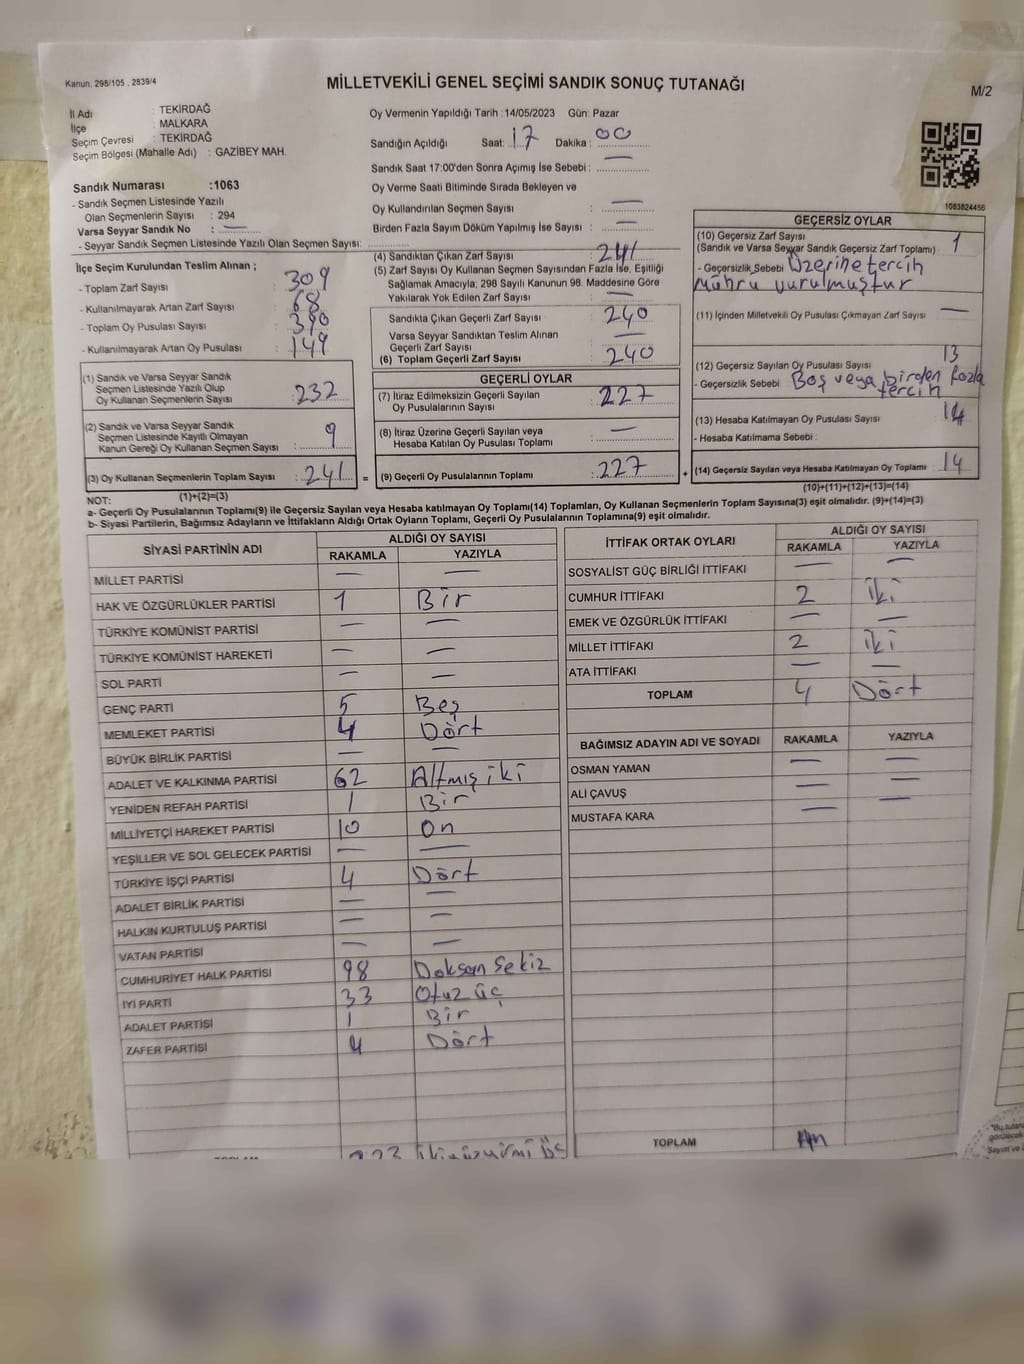 Kanun, 298/105 , 2839/4
MİLLETVEKİLİ GENEL SEÇİMİ SANDIK SONUÇ TUTANAĞI
M/2
İl Adı : TEKİRDAĞ
İlçe : MALKARA
Seçim Çevresi : TEKİRDAĞ
Seçim Bölgesi (Mahalle Adı) : GAZİBEY MAH.
Oy Vermenin Yapıldığı Tarih :14/05/2023 Gün: Pazar
Sandığın Açıldığı Saat: 17 Dakika: 00
Sandık Saat 17:00'den Sonra Açımış İse Sebebi : —
Oy Verme Saati Bitiminde Sırada Bekleyen ve
Oy Kullandırılan Seçmen Sayısı : —
Birden Fazla Sayım Döküm Yapılmış İse Sayısı : —
1083824456
Sandık Numarası :1063
- Sandık Seçmen Listesinde Yazılı
Olan Seçmenlerin Sayısı : 294
Varsa Seyyar Sandık No : —
- Seyyar Sandık Seçmen Listesinde Yazılı Olan Seçmen Sayısı:
İlçe Seçim Kurulundan Teslim Alınan ;
- Toplam Zarf Sayısı : 309
- Kullanılmayarak Artan Zarf Sayısı : 68
- Toplam Oy Pusulası Sayısı : 390
- Kullanılmayarak Artan Oy Pusulası : 149
(1) Sandık ve Varsa Seyyar Sandık
Seçmen Listesinde Yazılı Olup
Oy Kullanan Seçmenlerin Sayısı : 232
(2) Sandık ve Varsa Seyyar Sandık
Seçmen Listesinde Kayıtlı Olmayan
Kanun Gereği Oy Kullanan Seçmen Sayısı : 9
(3) Oy Kullanan Seçmenlerin Toplam Sayısı : 241 =
(1)+(2)=(3)
(4) Sandıktan Çıkan Zarf Sayısı : 241
(5) Zarf Sayısı Oy Kullanan Seçmen Sayısından Fazla İse, Eşitliği
Sağlamak Amacıyla; 298 Sayılı Kanunun 98. Maddesine Göre
Yakılarak Yok Edilen Zarf Sayısı : —
Sandıkta Çıkan Geçerli Zarf Sayısı : 240
Varsa Seyyar Sandıktan Teslim Alınan
Geçerli Zarf Sayısı : —
(6) Toplam Geçerli Zarf Sayısı : 240
GEÇERLİ OYLAR
(7) İtiraz Edilmeksizin Geçerli Sayılan
Oy Pusulalarının Sayısı : 227
(8) İtiraz Üzerine Geçerli Sayılan veya
Hesaba Katılan Oy Pusulası Toplamı : —
(9) Geçerli Oy Pusulalarının Toplamı : 227 +
GEÇERSİZ OYLAR
(10) Geçersiz Zarf Sayısı
(Sandık ve Varsa Seyyar Sandık Geçersiz Zarf Toplamı) : 1
- Geçersizlik Sebebi : Üzerine tercih
mührü vurulmuştur
(11) İçinden Milletvekili Oy Pusulası Çıkmayan Zarf Sayısı : —
(12) Geçersiz Sayılan Oy Pusulası Sayısı : 13
- Geçersizlik Sebebi : Boş veya birden fazla
tercih
(13) Hesaba Katılmayan Oy Pusulası Sayısı : 14
- Hesaba Katılmama Sebebi :
(14) Geçersiz Sayılan veya Hesaba Katılmayan Oy Toplamı : 14
(10)+(11)+(12)+(13)=(14)
NOT:
a- Geçerli Oy Pusulalarının Toplamı(9) ile Geçersiz Sayılan veya Hesaba katılmayan Oy Toplamı(14) Toplamları, Oy Kullanan Seçmenlerin Toplam Sayısına(3) eşit olmalıdır. (9)+(14)=(3)
b- Siyasi Partilerin, Bağımsız Adayların ve İttifakların Aldığı Ortak Oyların Toplamı, Geçerli Oy Pusulalarının Toplamına(9) eşit olmalıdır.
SİYASİ PARTİNİN ADI ALDIĞI OY SAYISI
RAKAMLA YAZIYLA
MİLLET PARTİSİ — —
HAK VE ÖZGÜRLÜKLER PARTİSİ 1 Bir
TÜRKİYE KOMÜNİST PARTİSİ — —
TÜRKİYE KOMÜNİST HAREKETİ — —
SOL PARTİ — —
GENÇ PARTİ 5 Beş
MEMLEKET PARTİSİ 4 Dört
BÜYÜK BİRLİK PARTİSİ — —
ADALET VE KALKINMA PARTİSİ 62 Altmış iki
YENİDEN REFAH PARTİSİ 1 Bir
MİLLİYETÇİ HAREKET PARTİSİ 10 On
YEŞİLLER VE SOL GELECEK PARTİSİ — —
TÜRKİYE İŞÇİ PARTİSİ 4 Dört
ADALET BİRLİK PARTİSİ — —
HALKIN KURTULUŞ PARTİSİ — —
VATAN PARTİSİ — —
CUMHURİYET HALK PARTİSİ 98 Doksan Sekiz
İYİ PARTİ 33 Otuz üç
ADALET PARTİSİ 1 Bir
ZAFER PARTİSİ 4 Dört
TOPLAM 223 İkiyüzyirmi Üç
İTTİFAK ORTAK OYLARI ALDIĞI OY SAYISI
RAKAMLA YAZIYLA
SOSYALİST GÜÇ BİRLİĞİ İTTİFAKI — —
CUMHUR İTTİFAKI 2 İki
EMEK VE ÖZGÜRLÜK İTTİFAKI — —
MİLLET İTTİFAKI 2 İki
ATA İTTİFAKI — —
TOPLAM 4 Dört
BAĞIMSIZ ADAYIN ADI VE SOYADI RAKAMLA YAZIYLA
OSMAN YAMAN — —
ALİ ÇAVUŞ — —
MUSTAFA KARA — —
TOPLAM
"Bu tutana
görülecek
Sayım ve